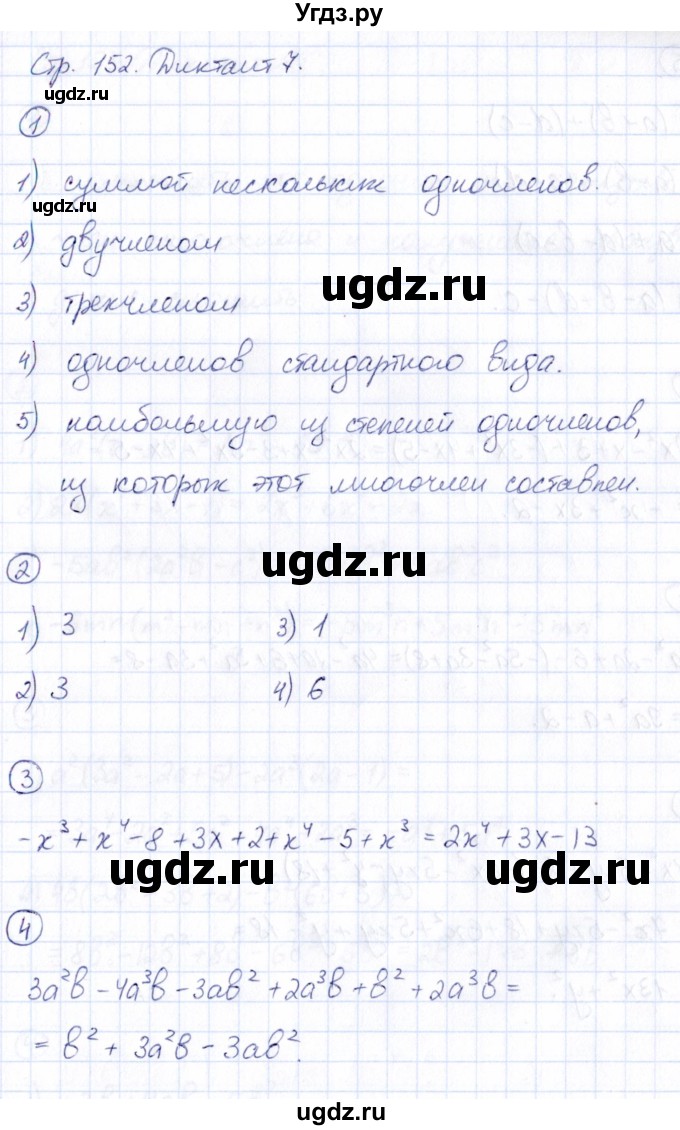 Угдз.ру
Стр. 152. Диктант 7.
ugdz.ru
1
1) суммой нескольких одночленов.
ugdz.ru
2) двучленом
ugdz.ru
3) трехчленом
4) одночленов стандартного вида.
5) наибольшую из степеней одночленов,
из которых этот многочлен составлен.
ugdz.ru
2
1) 3 3) 1
2) 3 4) 6
3
-x³ + x⁴ - 8 + 3x + 2 + x⁴ - 5 + x³ = 2x⁴ + 3x - 13
ugdz.ru ugdz.ru
4
3a²b - 4a³b - 3ab² + 2a³b + b² + 2a³b =
= b² + 3a²b - 3ab².
ugdz.ru
ugdz.ru